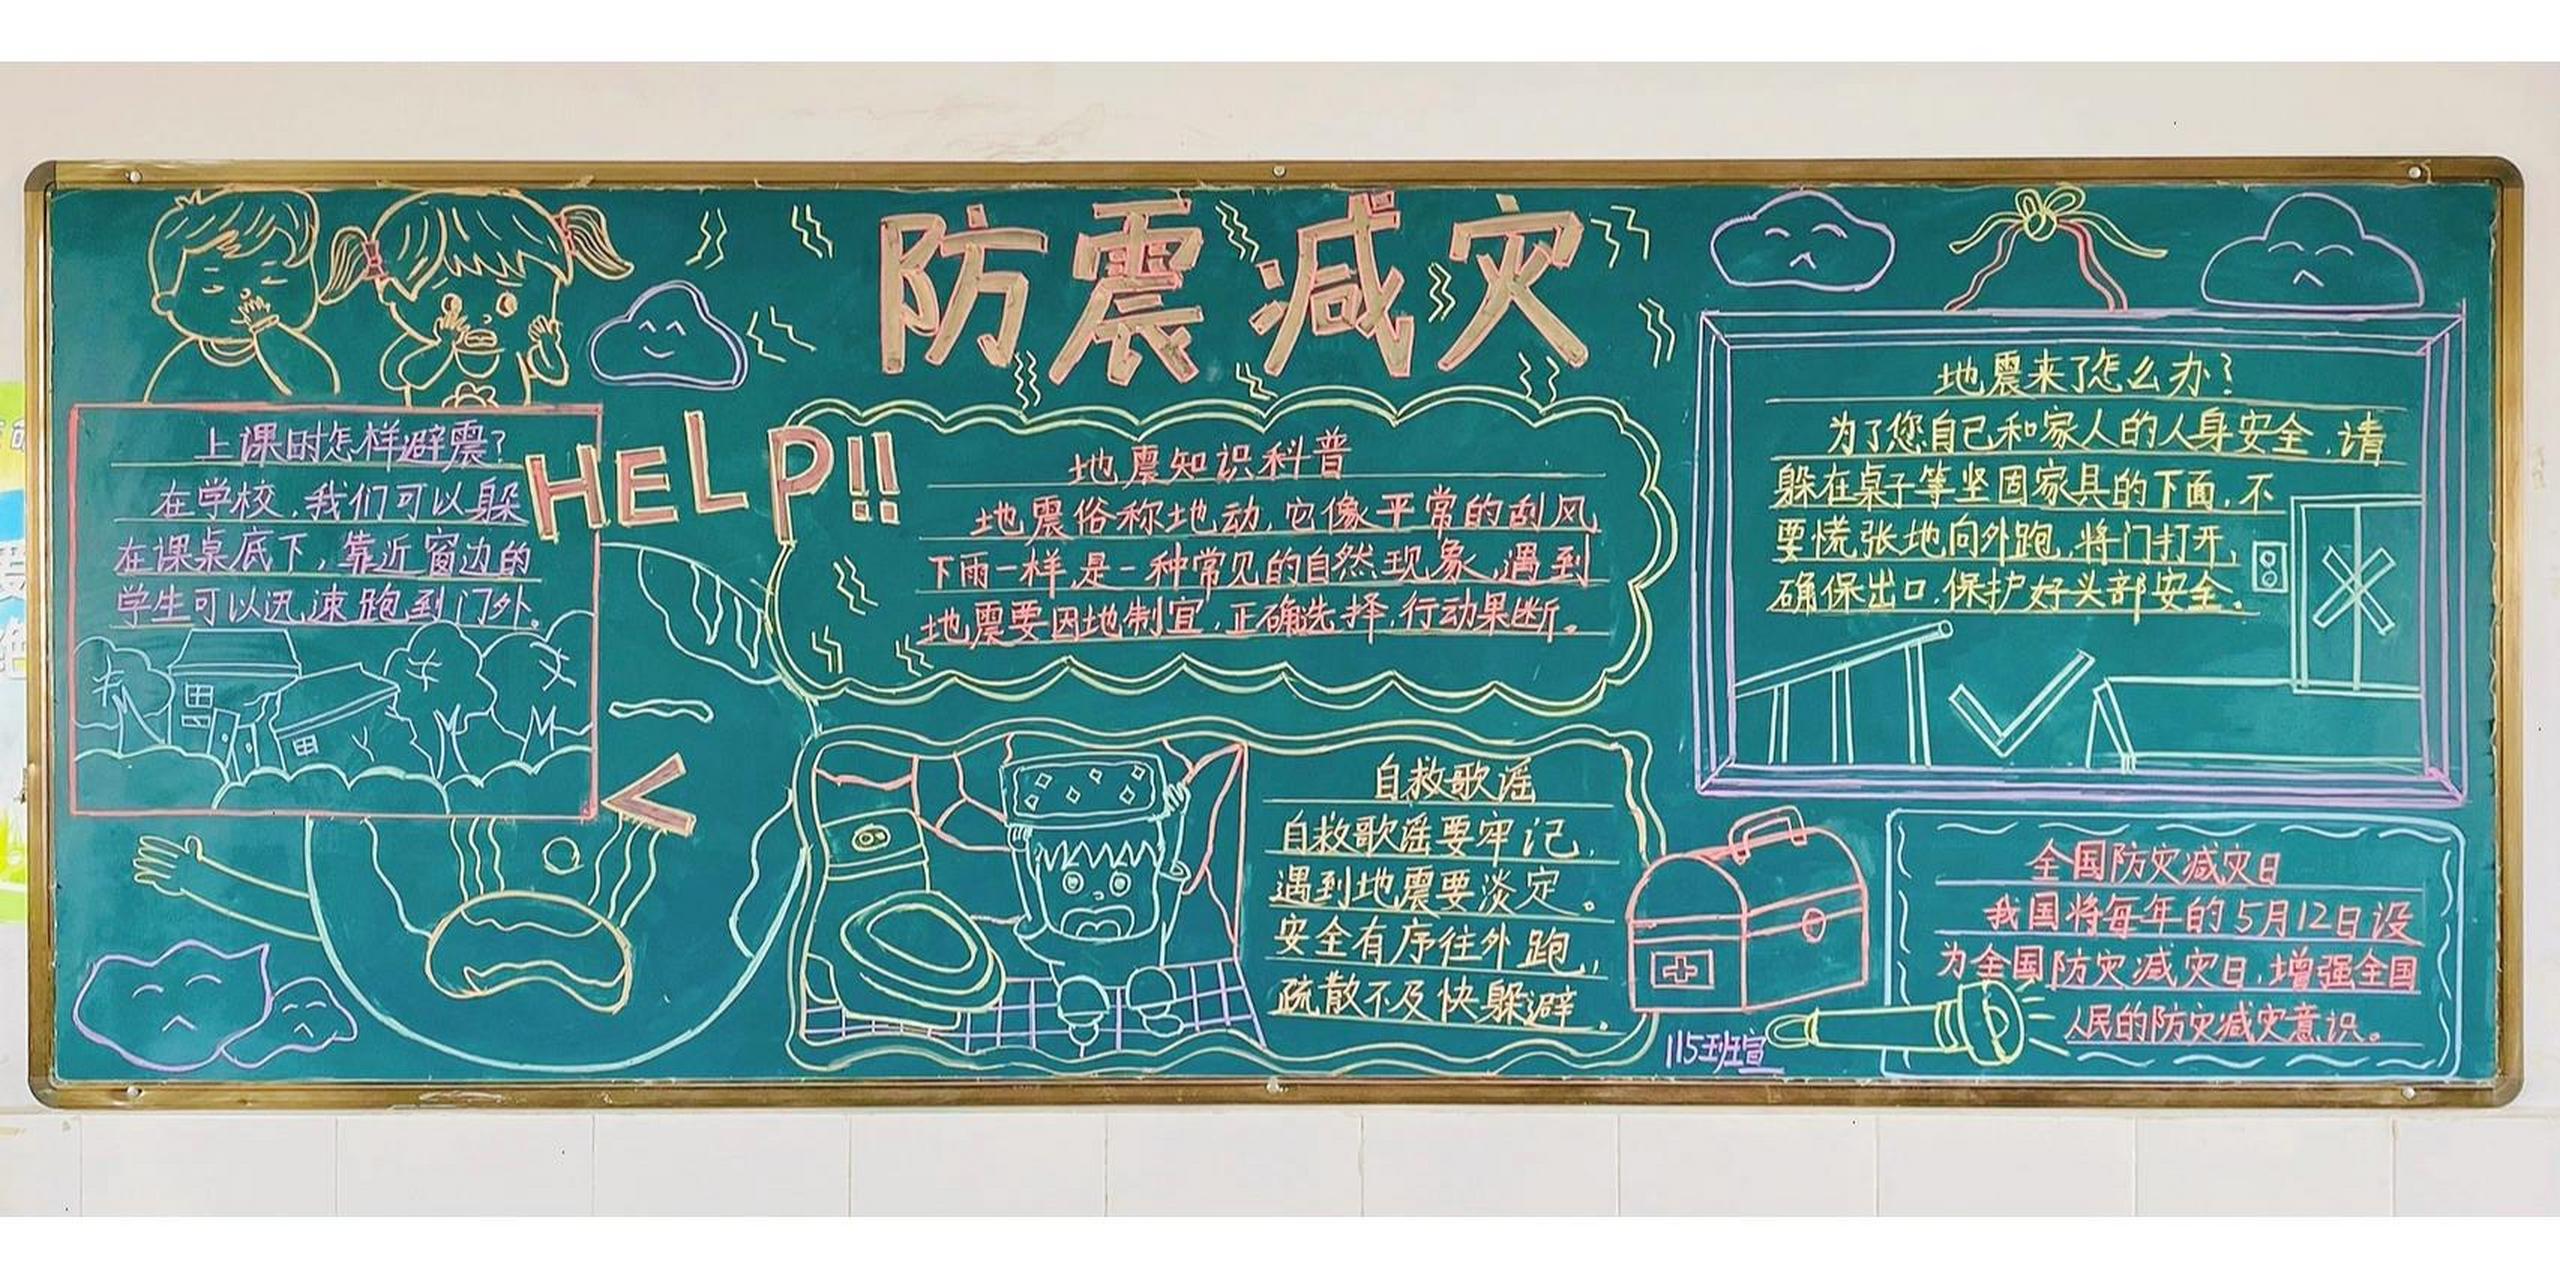 防震减灾
上课时怎样避震?
在学校,我们可以躲
在课桌底下,靠近窗边的
学生可以迅速跑到门外。
HELP!!
地震知识科普
地震俗称地动,它像平常的刮风,
下雨一样,是一种常见的自然现象,遇到
地震要因地制宜,正确选择,行动果断。
地震来了怎么办?
为了您自己和家人的人身安全,请
躲在桌子等坚固家具的下面,不
要慌张地向外跑,将门打开,
确保出口,保护好头部安全。
自救歌谣
自救歌谣要牢记,
遇到地震要淡定。
安全有序往外跑,
疏散不及快躲避。
全国防灾减灾日
我国将每年的5月12日设
为全国防灾减灾日,增强全国
人民的防灾减灾意识。
115班宣